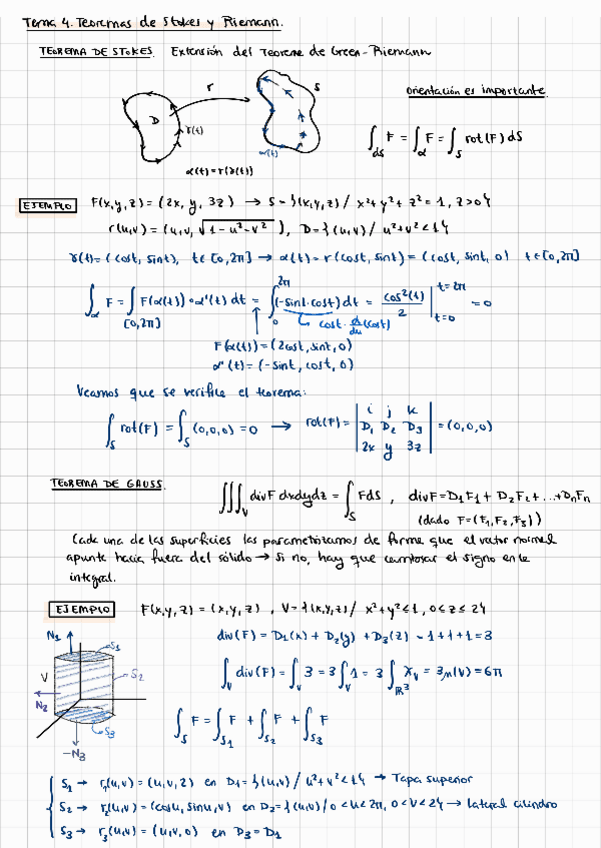 Tema 4. Teoremas de Stokes y Riemann.
TEOREMA DE STOKES. Extensión del Teorema de Green-Riemann
r
S
D
γ(t)
α(t)
α(t)=r(γ(t))
Orientación es importante
∫_{dS} F = ∫_α F = ∫_S rot(F) dS
EJEMPLO F(x,y,z) = (2x, y, 3z) → S = {(x,y,z) / x²+y²+z² = 1, z>0}
r(u,v) = (u,v, √(1-u²-v²)), D = {(u,v) / u²+v²<1}
γ(t) = (cost, sint), t∈[0,2π] → α(t) = r(cost, sint) = (cost, sint, 0) t∈[0,2π]
∫_α F = ∫_{[0,2π]} F(α(t))∘α'(t) dt = ∫_0^{2π} (-sint·cost) dt = cos²(t)/2 |_{t=0}^{t=2π} = 0
F(α(t)) = (2cost, sint, 0)
α'(t) = (-sint, cost, 0)
Veamos que se verifica el teorema:
∫_S rot(F) = ∫_S (0,0,0) = 0 → rot(F) = | i j k | = (0,0,0)
| D₁ D₂ D₃ |
| 2x y 3z |
TEOREMA DE GAUSS. ∭_V divF dxdydz = ∫_S FdS , divF = D₁F₁ + D₂F₂ + ... + DₙFₙ
(dado F=(F₁,F₂,F₃))
Cada una de las superficies las parametrizamos de forma que el vector normal
apunte hacia fuera del sólido → Si no, hay que cambiar el signo en la
integral.
EJEMPLO F(x,y,z) = (x,y,z) , V = {(x,y,z) / x²+y²≤1, 0≤z≤2}
N₁
S₁
V
S₂
N₂
S₃
-N₃
div(F) = D₁(x) + D₂(y) + D₃(z) = 1+1+1 = 3
∫_V div(F) = ∫_V 3 = 3∫_V 1 = 3∫_{ℝ³} χ_V = 3m(V) = 6π
∫_S F = ∫_{S₁} F + ∫_{S₂} F + ∫_{S₃} F
S₁ → r₁(u,v) = (u,v,2) en D₁ = {(u,v) / u²+v²<1} → Tapa superior
S₂ → r₂(u,v) = (cosu, sinu, v) en D₂ = {(u,v) / 0<u<2π, 0<v<2} → lateral cilindro
S₃ → r₃(u,v) = (u,v,0) en D₃ = D₁